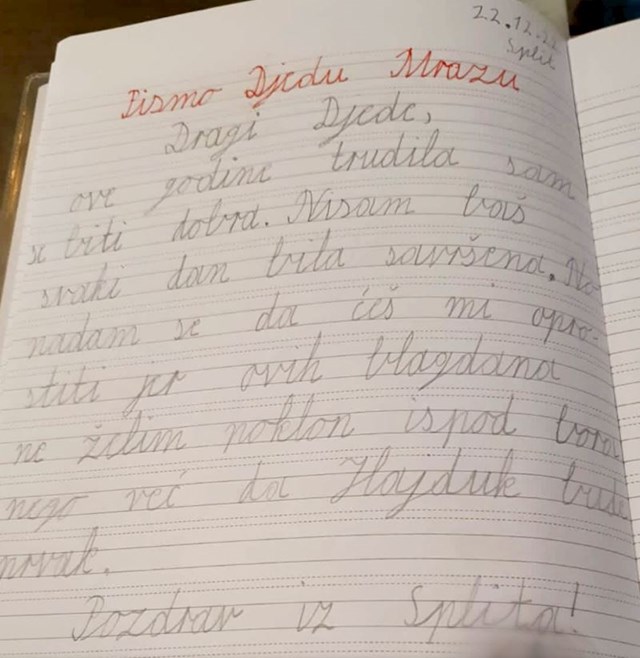 22.12.22
Split
Pismo Djedu Mrazu
Dragi Djede,
ove godine trudila sam
se biti dobra. Nisam baš
svaki dan bila savršena. No
nadam se da ćeš mi opro-
stiti jer ovih blagdana
ne želim poklon ispod bora
nego već da Hajduk bude
prvak.
Pozdrav iz Splita!